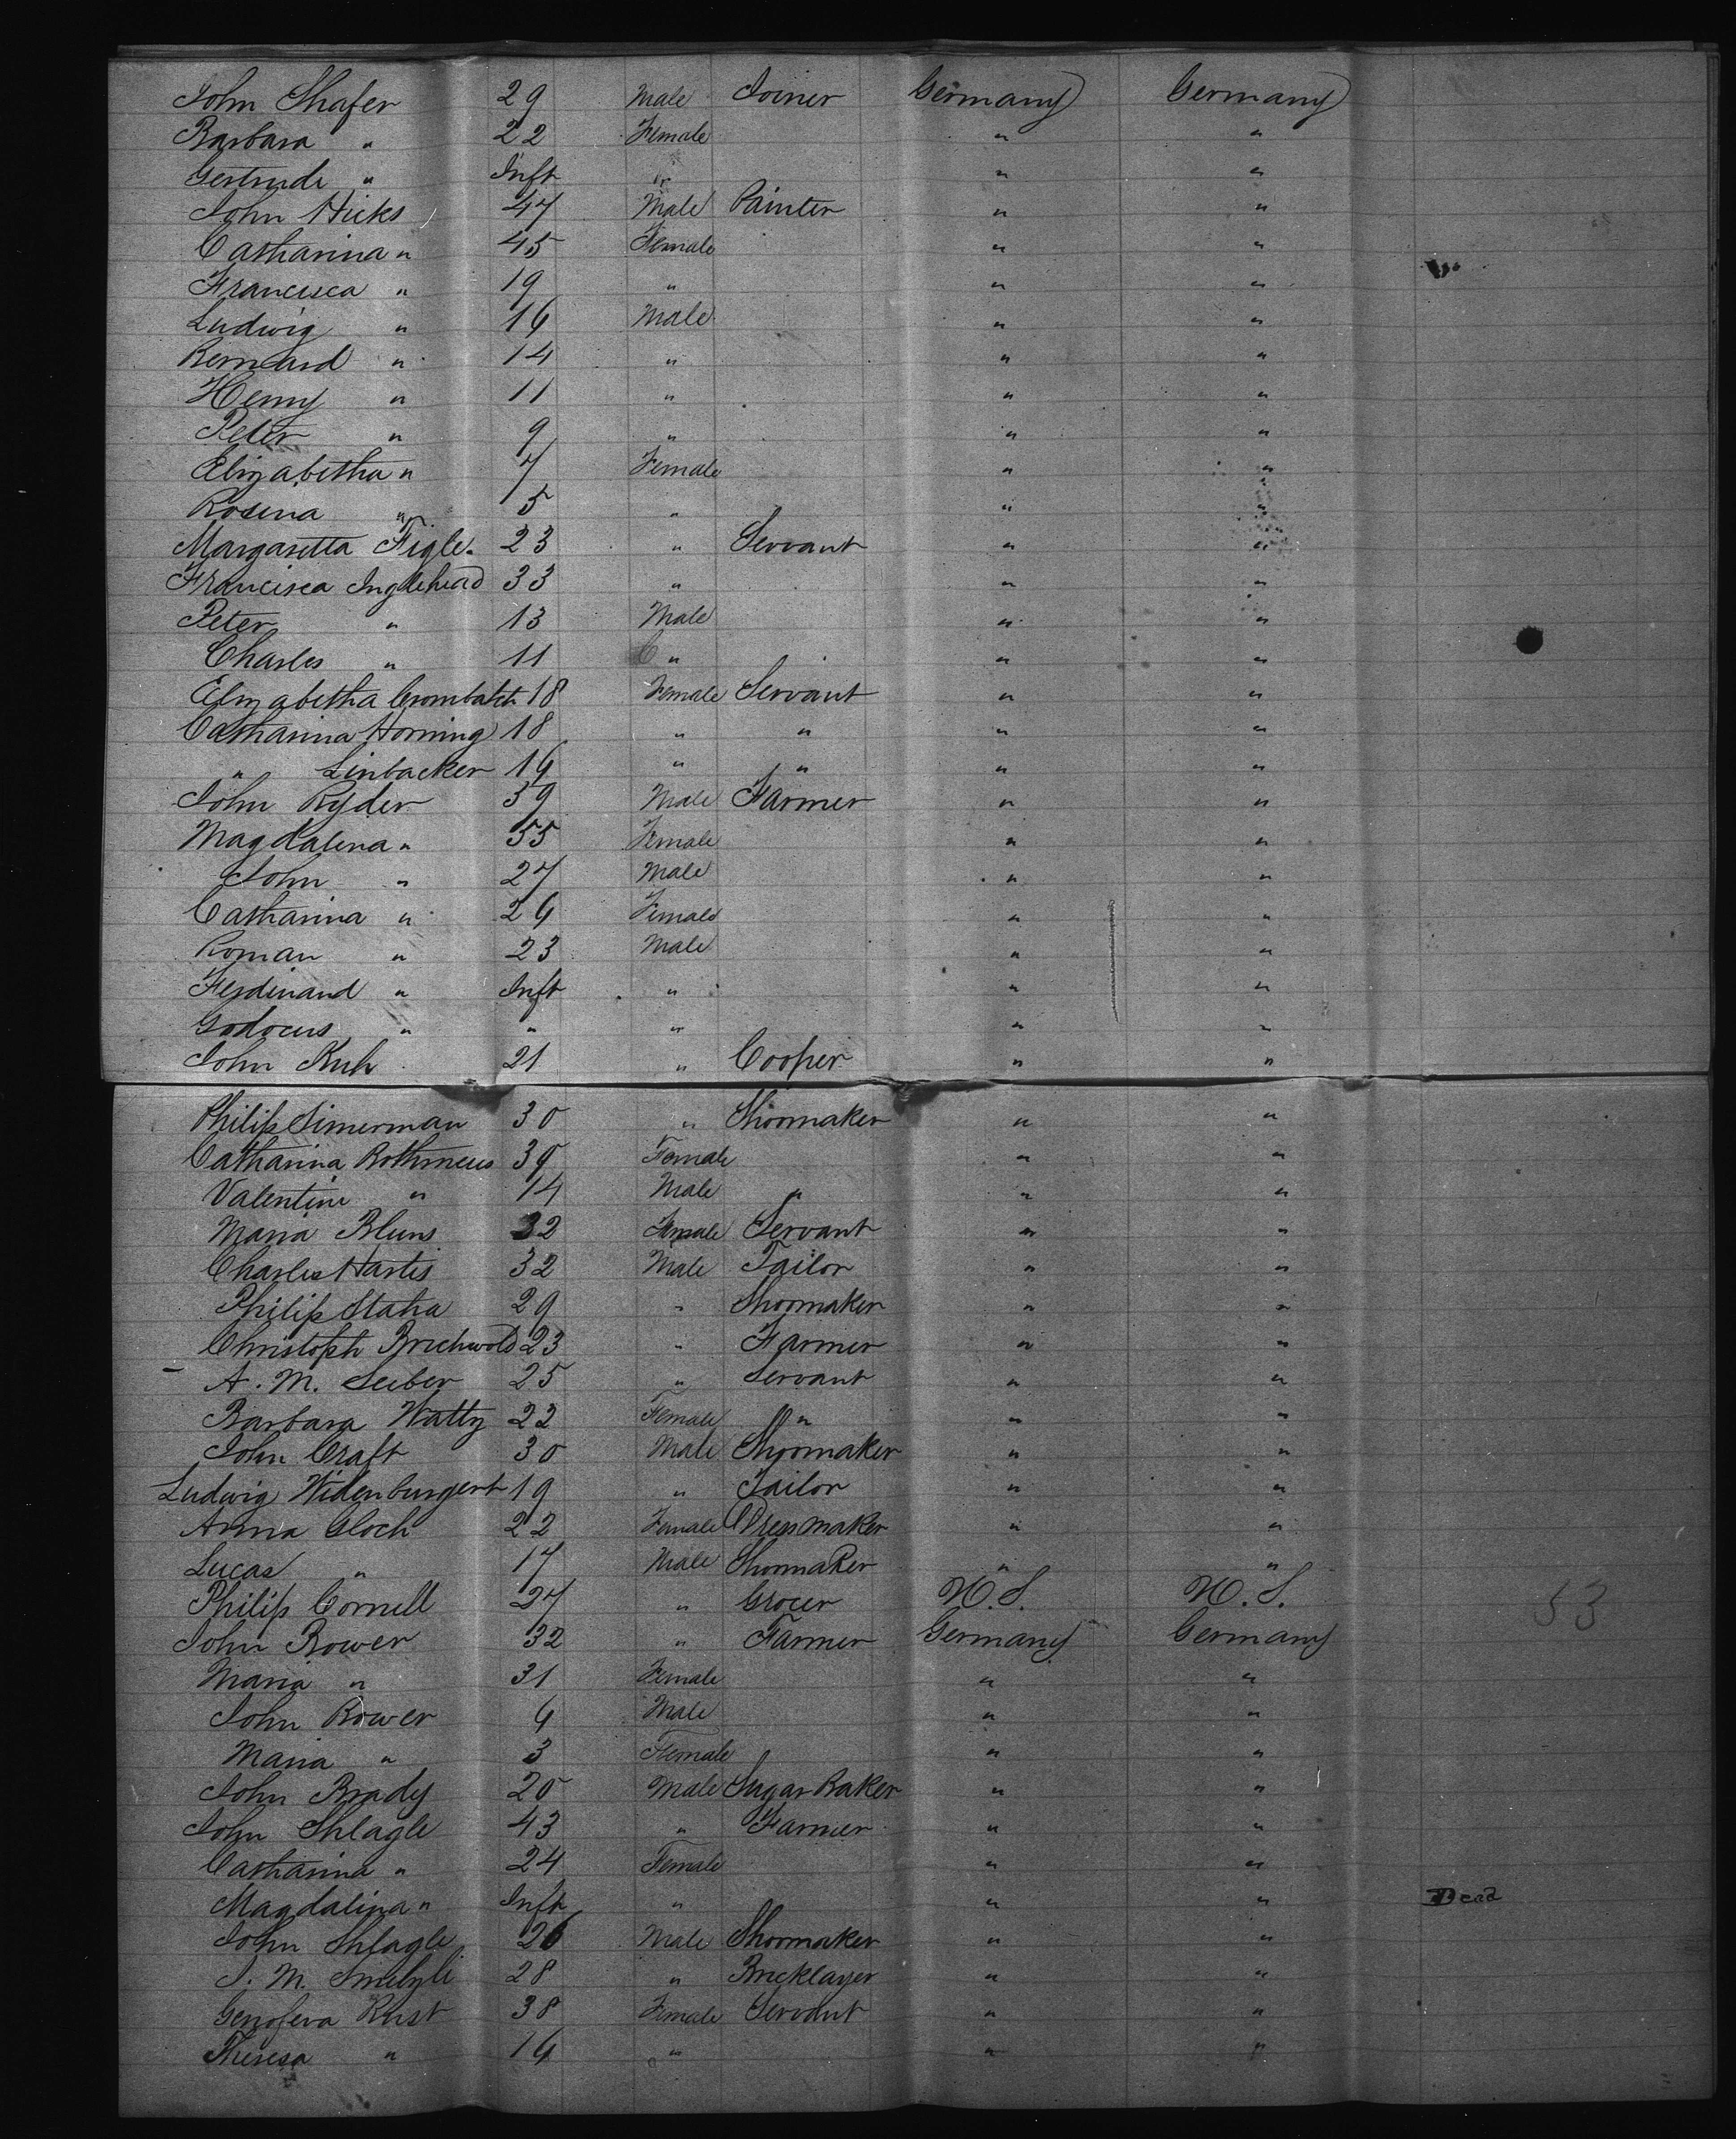 John Shafer 29 Male Joiner Germany Germany
Barbara " 22 Female " "
Gertrude " Inft " " "
John Hicks 47 Male Painter " "
Catharina " 45 Female " "
Francisca " 19 " " "
Ludwig " 16 Male " "
Bernard " 14 " " "
Henry " 11 " " "
Peter " 9 " " "
Elizabetha " 7 Female " "
Rosina " 5 " " "
Margaretta Figle 23 " Servant " "
Francisca Inglehead 33 " " "
Peter " 13 Male " "
Charles " 11 " " "
Elizabetha Crombatch 18 Female Servant " "
Catharina Horning 18 " " " "
" Linbacker 16 " " " "
John Ryder 59 Male Farmer " "
Magdalena " 55 Female " "
John " 27 Male " "
Catharina " 26 Female " "
Roman " 23 Male " "
Ferdinand " Inft " " "
Godocus " " " " "
John Kuh 21 " Cooper " "
Philip Simerman 30 " Shoomaker " "
Catharina Rothmeus 39 Female " "
Valentine " 14 Male " " "
Maria Bluns 32 Female Servant " "
Charles Hartis 32 Male Tailor " "
Philip Staha 29 " Shoomaker " "
Christoph Brichwold 23 " Farmer " "
A. M. Seiber 25 " Servant " "
Barbara Watty 22 Female " " "
John Craft 30 Male Shoomaker " "
Ludwig Widenburgert 19 " Tailor " "
Anna Gloch 22 Female Dressmaker " "
Lucas " 17 Male Shoomaker " "
Philip Cornell 27 " Grocer U.S. U.S. 53
John Bower 32 " Farmer Germany Germany
Maria " 31 Female " "
John Bower 6 Male " "
Maria " 3 Female " "
John Brady 20 Male Sugar Baker " "
John Shlagle 43 " Farmer " "
Catharina " 24 Female " "
Magdalina " Inft " " " Dead
John Shlagle 26 Male Shoomaker " "
J. M. 28 " Bricklayer " "
Genofeva Rust 38 Female Servant " "
Theresa " 16 " " "